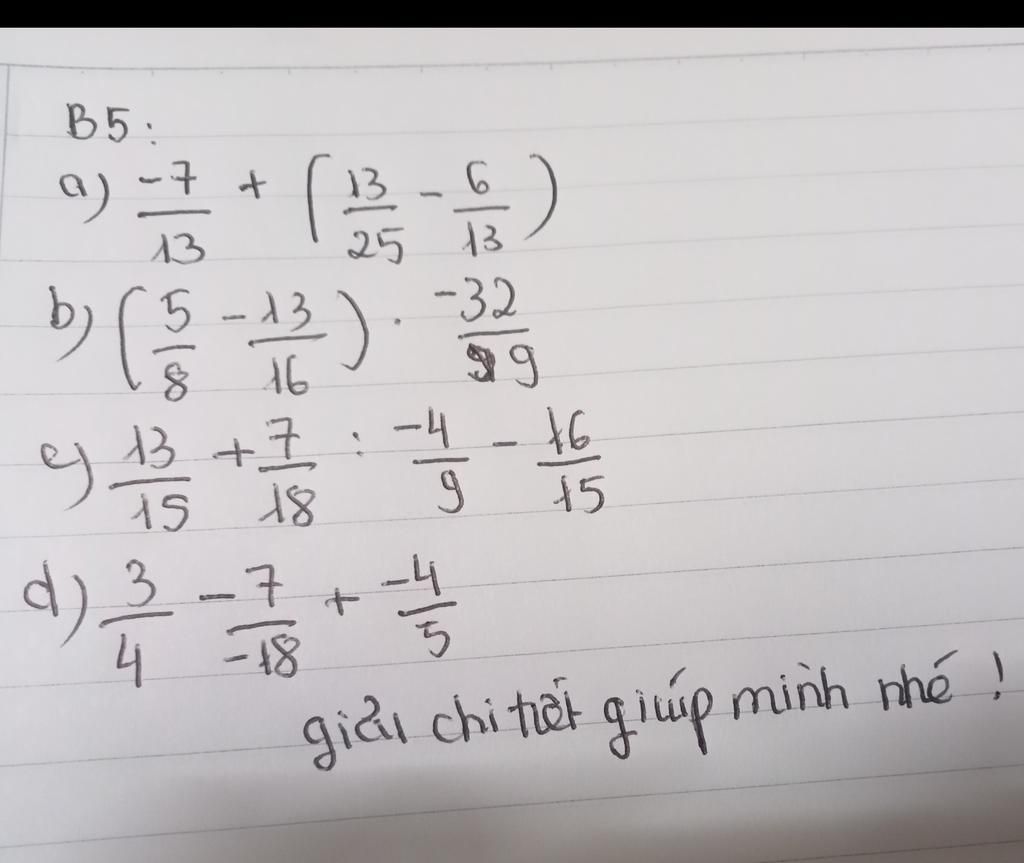 B5:
a) -7/13 + (13/25 - 6/13)
b) (5/8 - 13/16) . -32/9
c) 13/15 + 7/18 : -4/9 - 16/15
d) 3/4 - 7/-18 + -4/5
giải chi tiết giúp mình nhé !